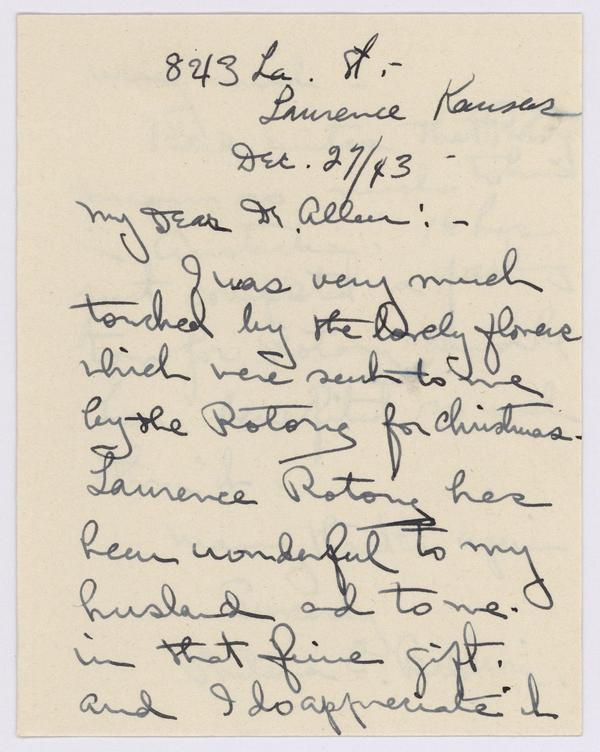 843 La. St.-
Lawrence Kansas
Dec. 27/43 -
My Dear Dr. Allen:-
I was very much
touched by the lovely flowers
which were sent to me
by the Rotary for Christmas.
Lawrence Rotary has
been wonderful to my
husband and to me.
in that fine gift.
and I do appreciate it